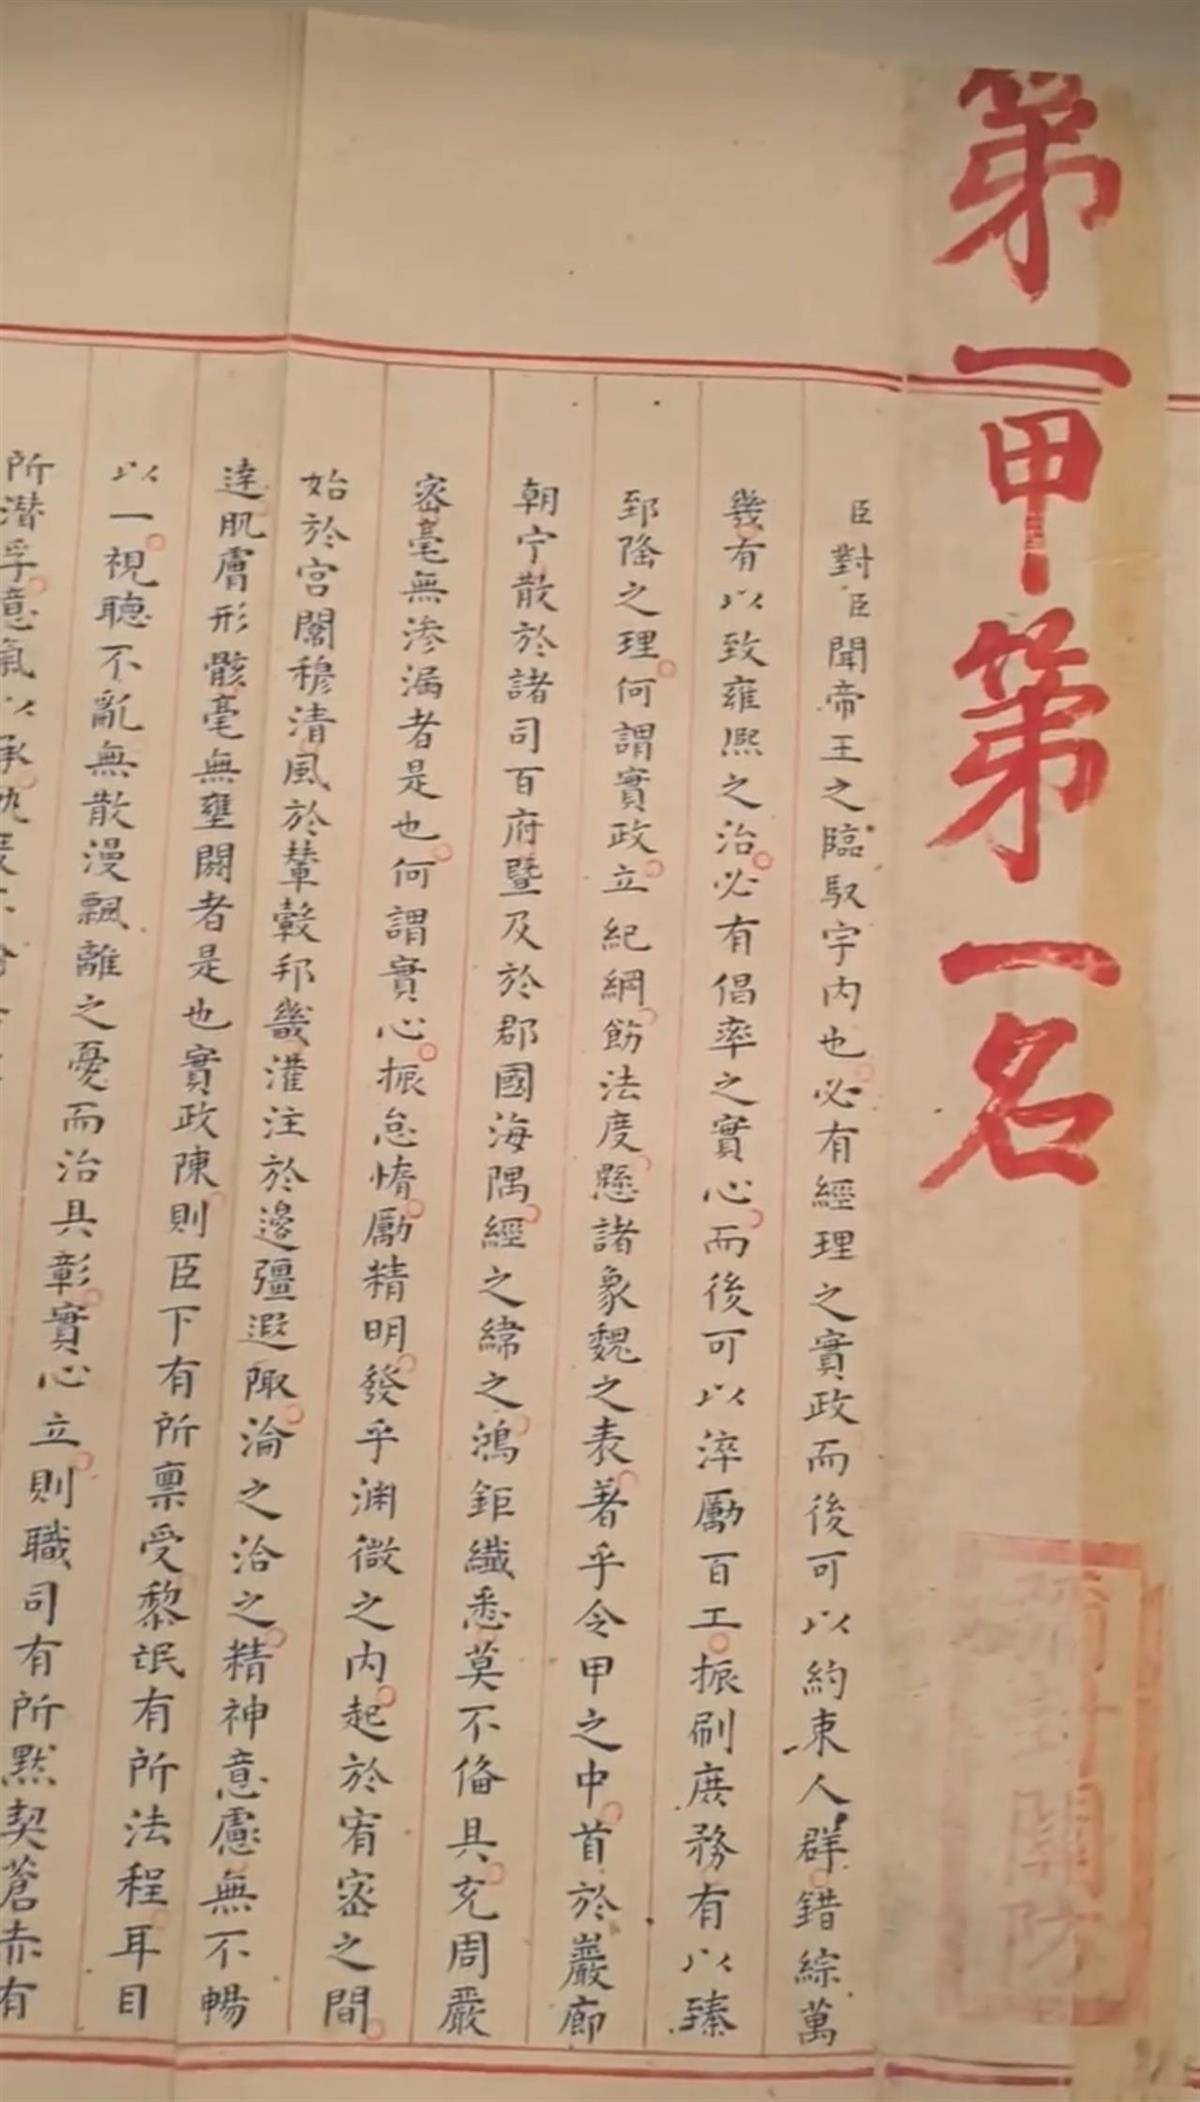 第一甲第一名
臣對臣聞帝王之臨馭宇内也必有經理之實政而後可以約束人群錯綜萬
幾有以致雍熙之治必有倡率之實心而後可以淬勵百工振刷庶務有以臻
郅隆之理何謂實政立紀綱飭法度懸諸象魏之表著乎令甲之中首於巖廊
朝宁散於諸司百府暨及於郡國海隅經之緯之鴻鉅纖悉莫不俻具充周嚴
宻毫無滲漏者是也何謂實心振怠惰勵精明發乎渊微之内起於宥宻之間
始於宫闈穆清風於輦轂邦畿灌注於邊疆遐陬淪之洽之精神意慮無不暢
逹肌膚形骸毫無壅閼者是也實政陳則臣下有所禀受黎氓有所法程耳目
以一視聴不亂無散漫飄離之憂而治具彰實心立則職司有所黙契蒼赤有
所潜孚意氣以承
關防